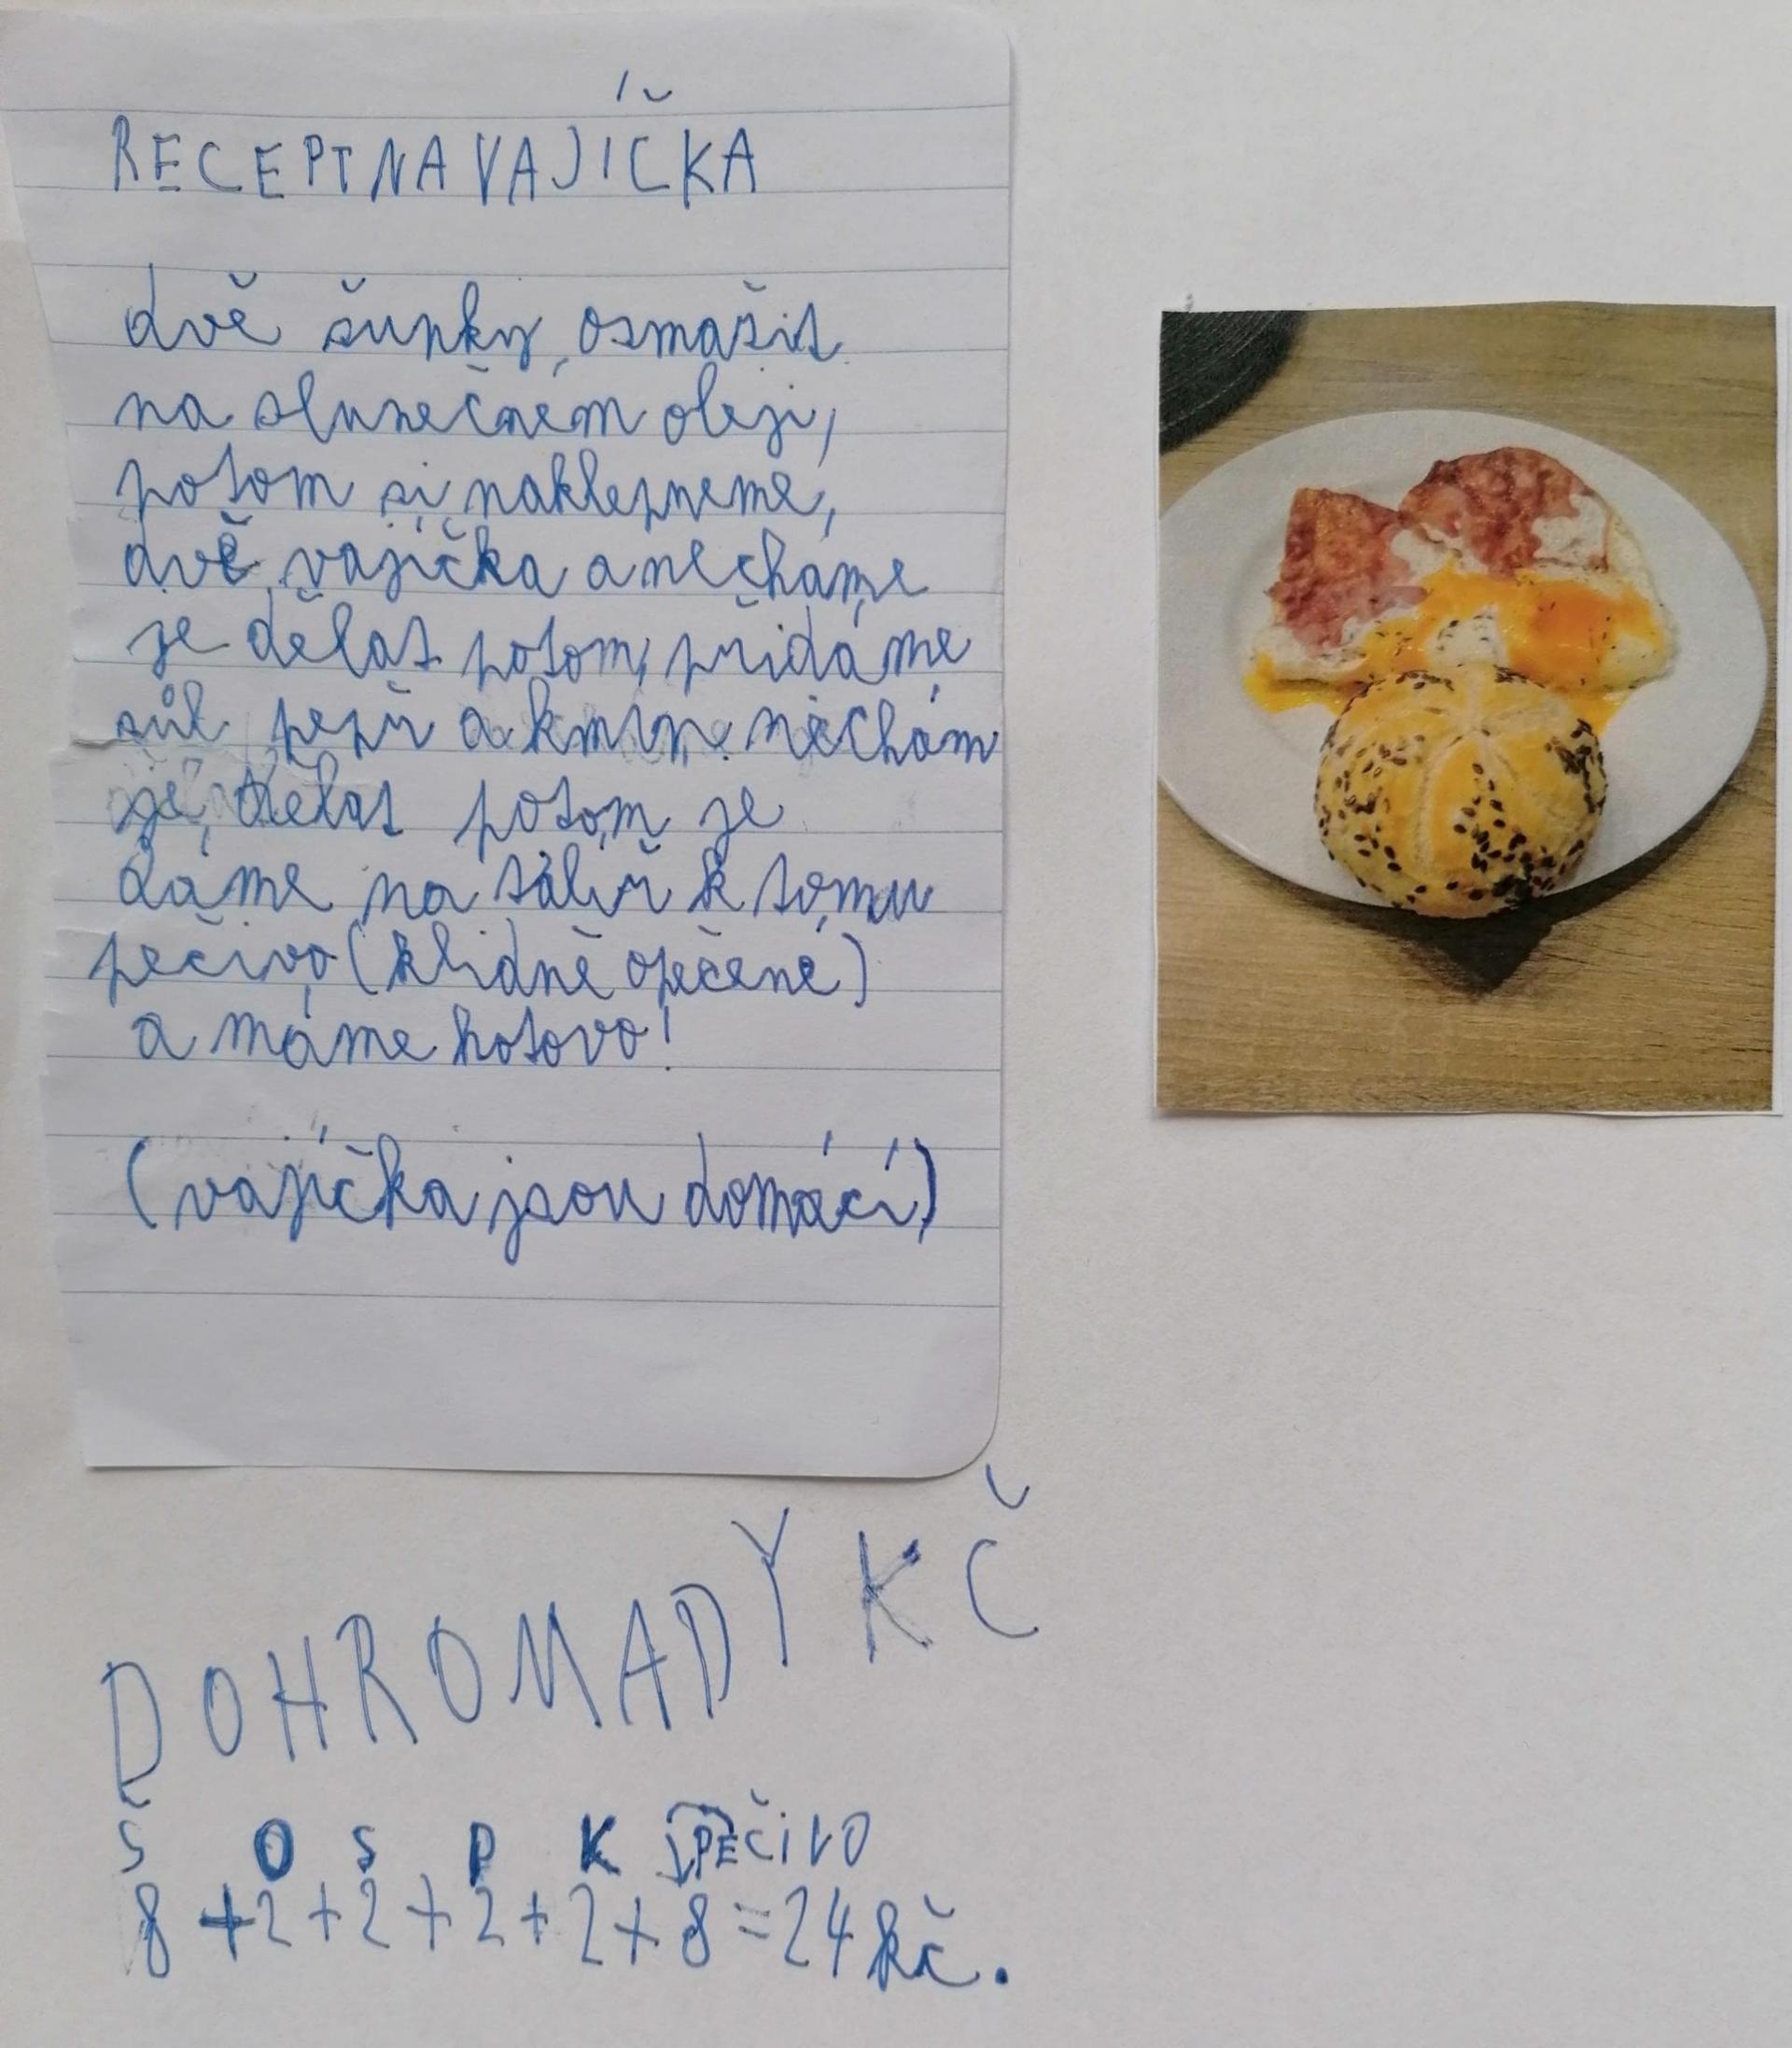 RECEPT NA VAJÍČKA
dvě šunky, osmažit
na slunečném oleji,
potom si naklepneme,
dvě vajíčka a necháme
je dělat potom, přidáme
sůl pepř a kmín. nechám
je dělat potom je
dáme na talíř k tomu
pečivo (klidně opečené)
a máme hotovo!
(vajíčka jsou domácí)
DOHROMADY KČ
Š O S P K PEČIVO
8 + 2 + 2 + 2 + 2 + 8 = 24 kč.